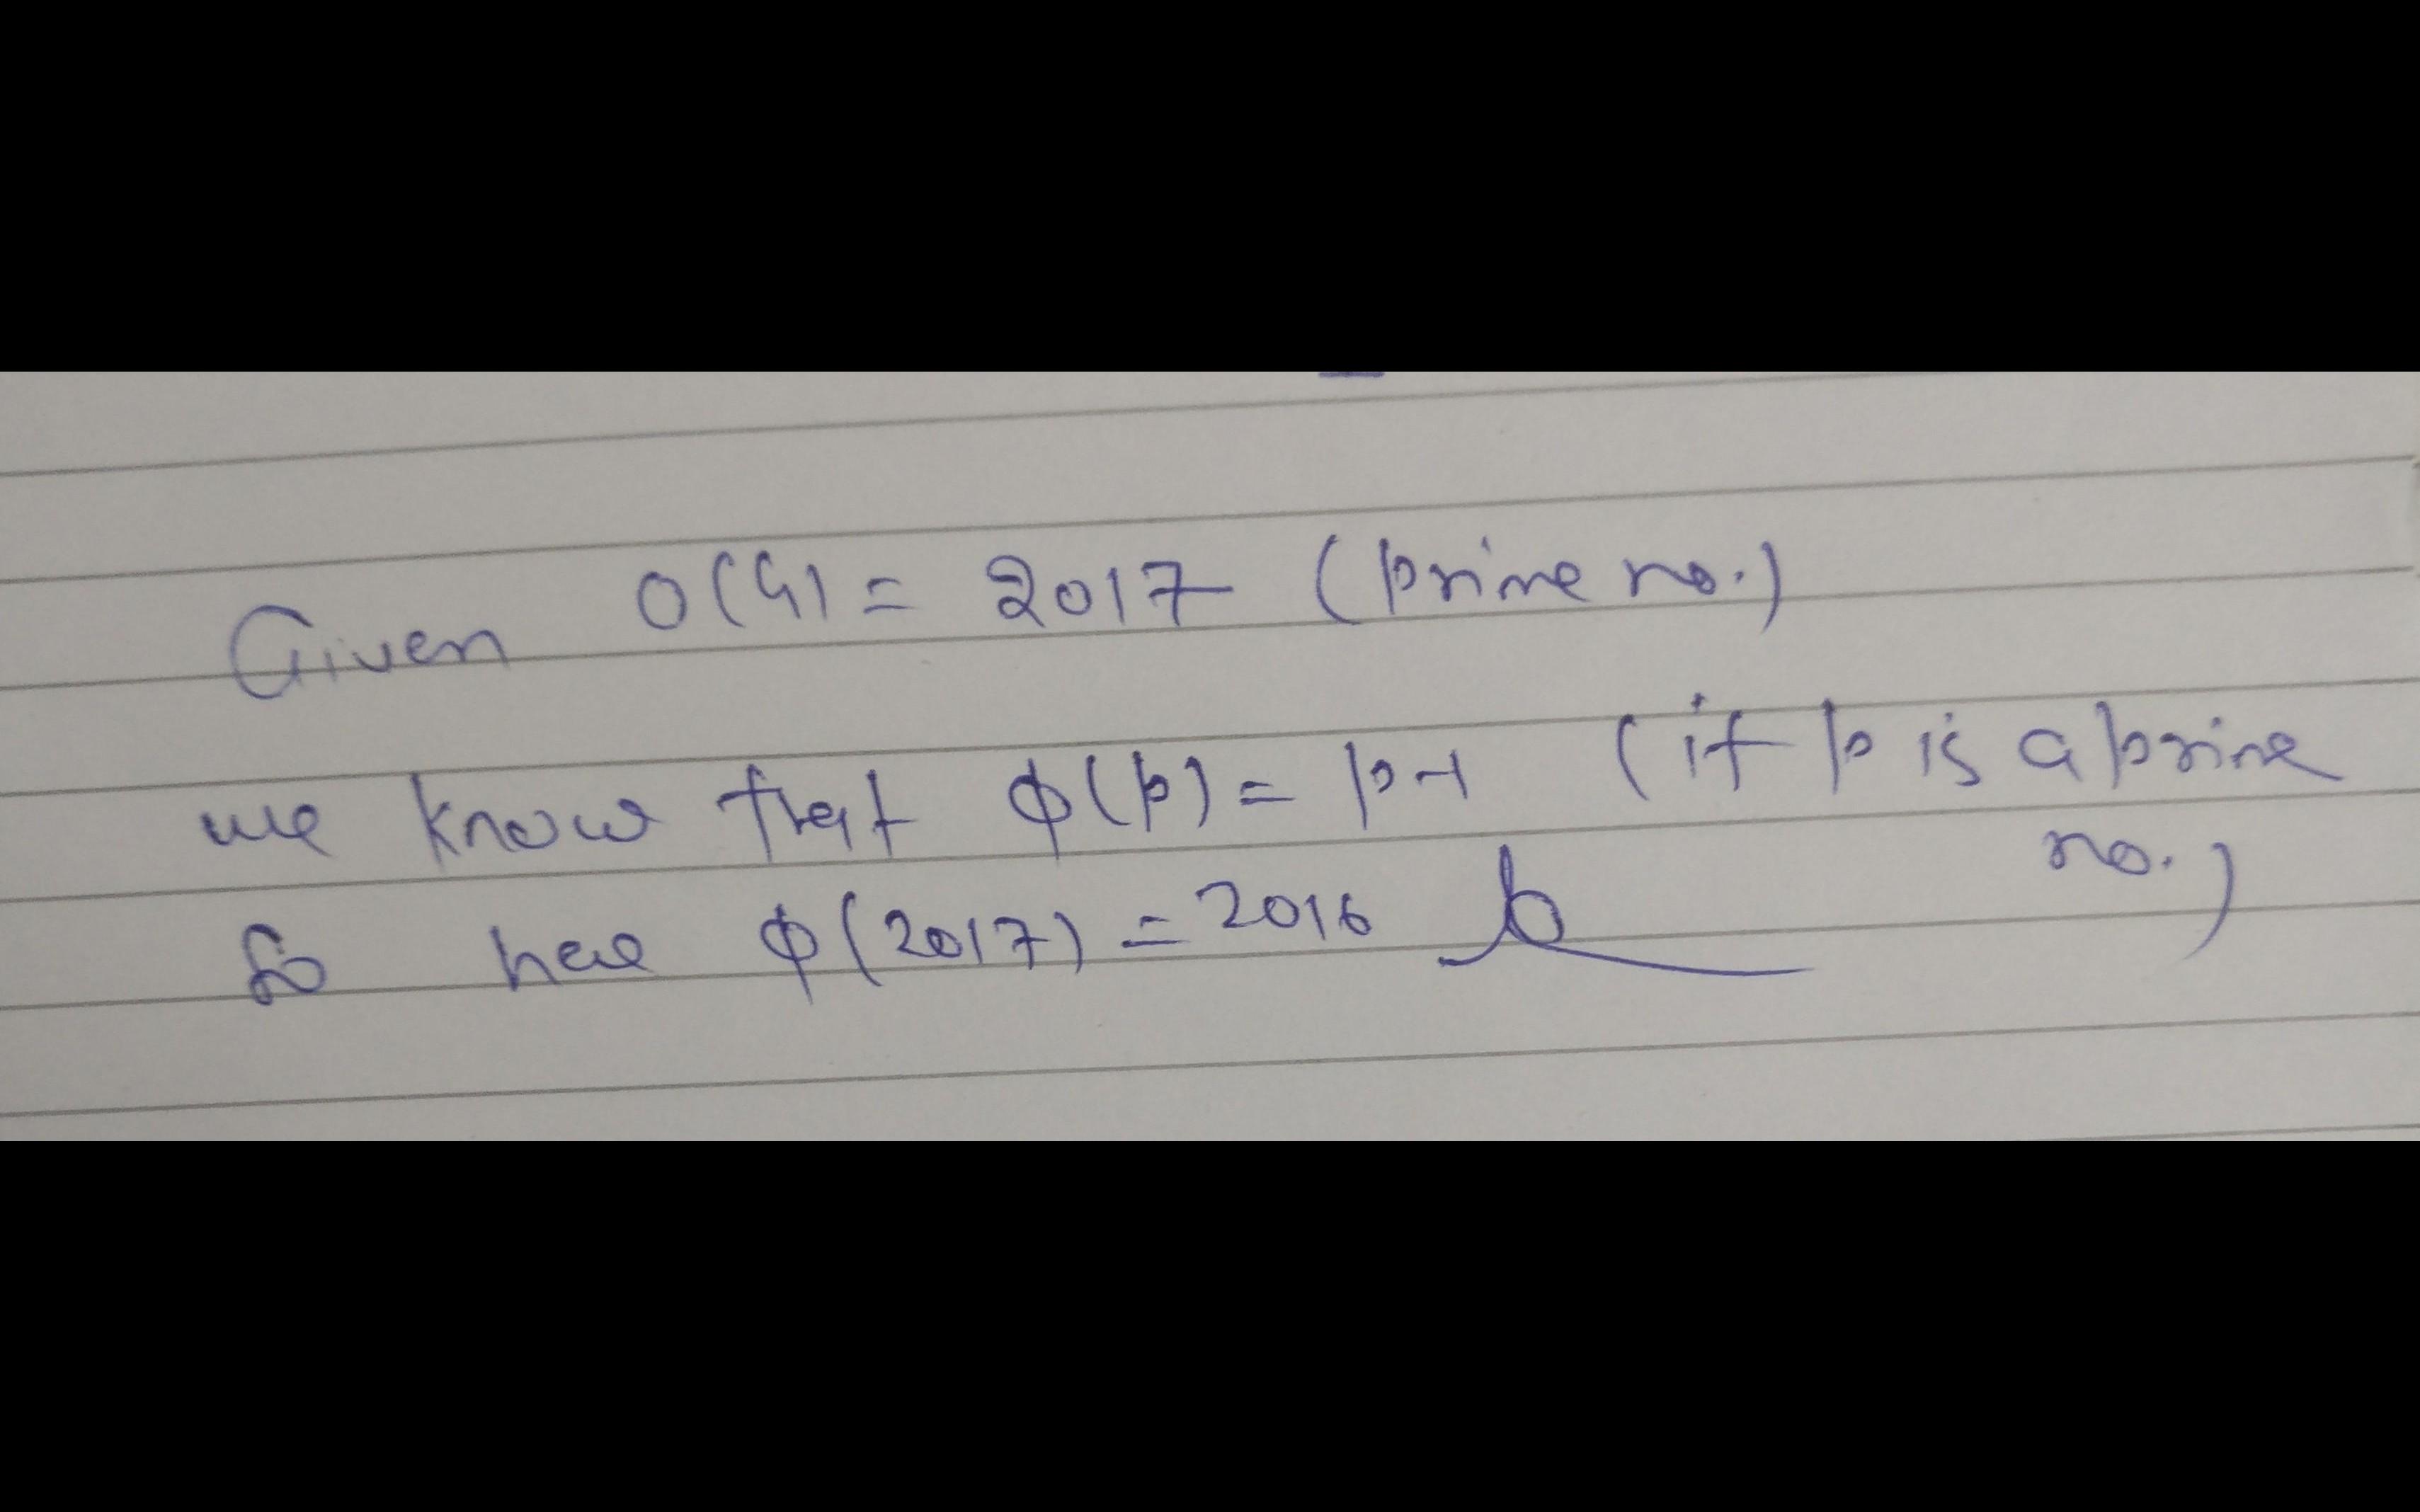 Given O(G) = 2017 (prime no.)
we know that ϕ(p) = p-1 (if p is a prime
no.)
So here ϕ(2017) = 2016